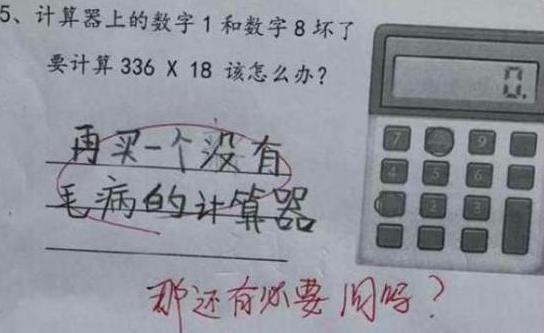 5、计算器上的数字1和数字8坏了
要计算336 X 18 该怎么办？
0.
再买一个没有
毛病的计算器
7
9
4
5
6
2
3
那还有必要问吗？